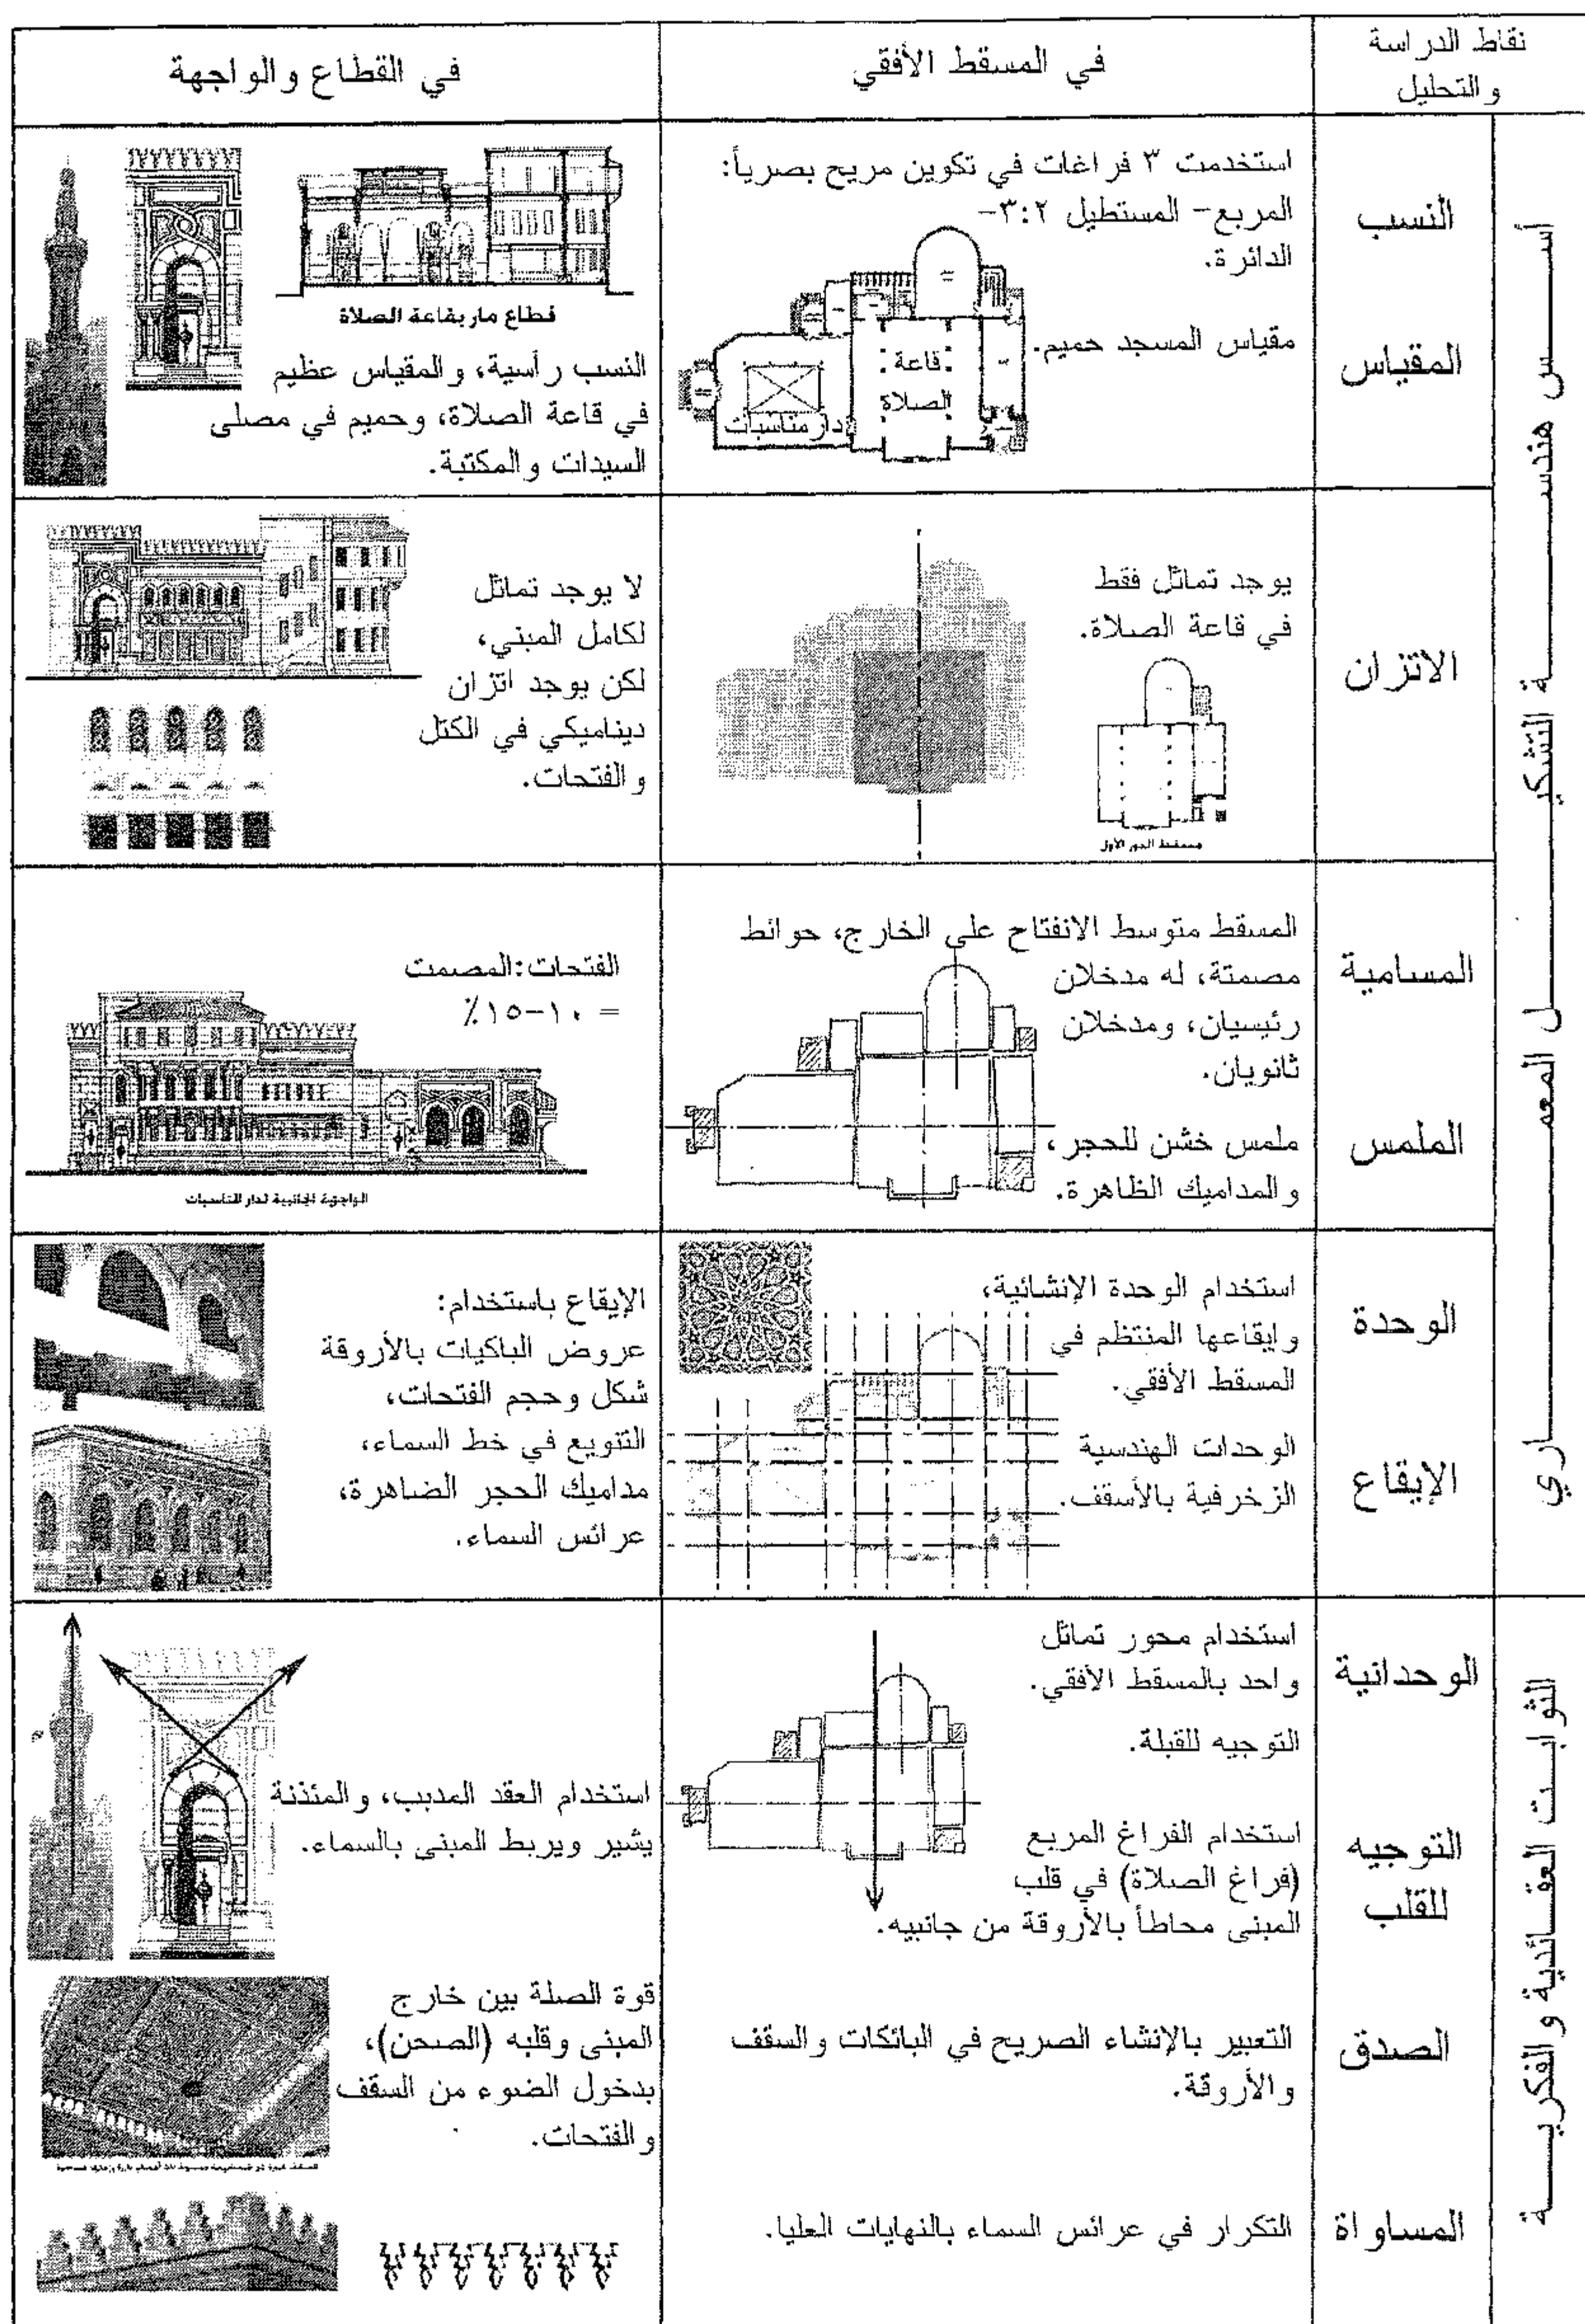 نقاط الدراسة
والتحليل
في المسقط الأفقي
في القطاع والواجهة
أسس هندسة التشكيل المعماري
النسب
المقياس
استخدمت ٣ فراغات في تكوين مريح بصرياً:
المربع- المستطيل ٣:٢-
الدائرة.
مقياس المسجد حميم.
قاعة
الصلاة
دار مناسبات
قطاع مار بقاعة الصلاة
النسب رأسية، والمقياس عظيم
في قاعة الصلاة، وحميم في مصلى
السيدات والمكتبة.
الاتزان
يوجد تماثل فقط
في قاعة الصلاة.
مسقط الدور الأول
لا يوجد تماثل
لكامل المبني،
لكن يوجد اتزان
ديناميكي في الكتل
والفتحات.
المسامية
الملمس
المسقط متوسط الانفتاح علي الخارج، حوائط
مصمتة، له مدخلان
رئيسيان، ومدخلان
ثانويان.
ملمس خشن للحجر،
والمداميك الظاهرة.
الفتحات:المصمت
= ١٠-١٥٪
الواجهة الجانبية لدار المناسبات
الوحدة
الإيقاع
استخدام الوحدة الإنشائية،
وإيقاعها المنتظم في
المسقط الأفقي.
الوحدات الهندسية
الزخرفية بالأسقف.
الإيقاع باستخدام:
عروض الباكيات بالأروقة
شكل وحجم الفتحات،
التنويع في خط السماء،
مداميك الحجر الضاهرة،
عرائس السماء.
الثوابت العقائدية والفكرية
الوحدانية
التوجيه
للقلب
استخدام محور تماثل
واحد بالمسقط الأفقي.
التوجيه للقبلة.
استخدام الفراغ المربع
(فراغ الصلاة) في قلب
المبنى محاطاً بالأروقة من جانبيه.
استخدام العقد المدبب، والمئذنة
يشير ويربط المبنى بالسماء.
الصدق
التعبير بالإنشاء الصريح في البائكات والسقف
والأروقة.
قوة الصلة بين خارج
المبنى وقلبه (الصحن)،
بدخول الضوء من السقف
والفتحات.
المساواة
التكرار في عرائس السماء بالنهايات العليا.